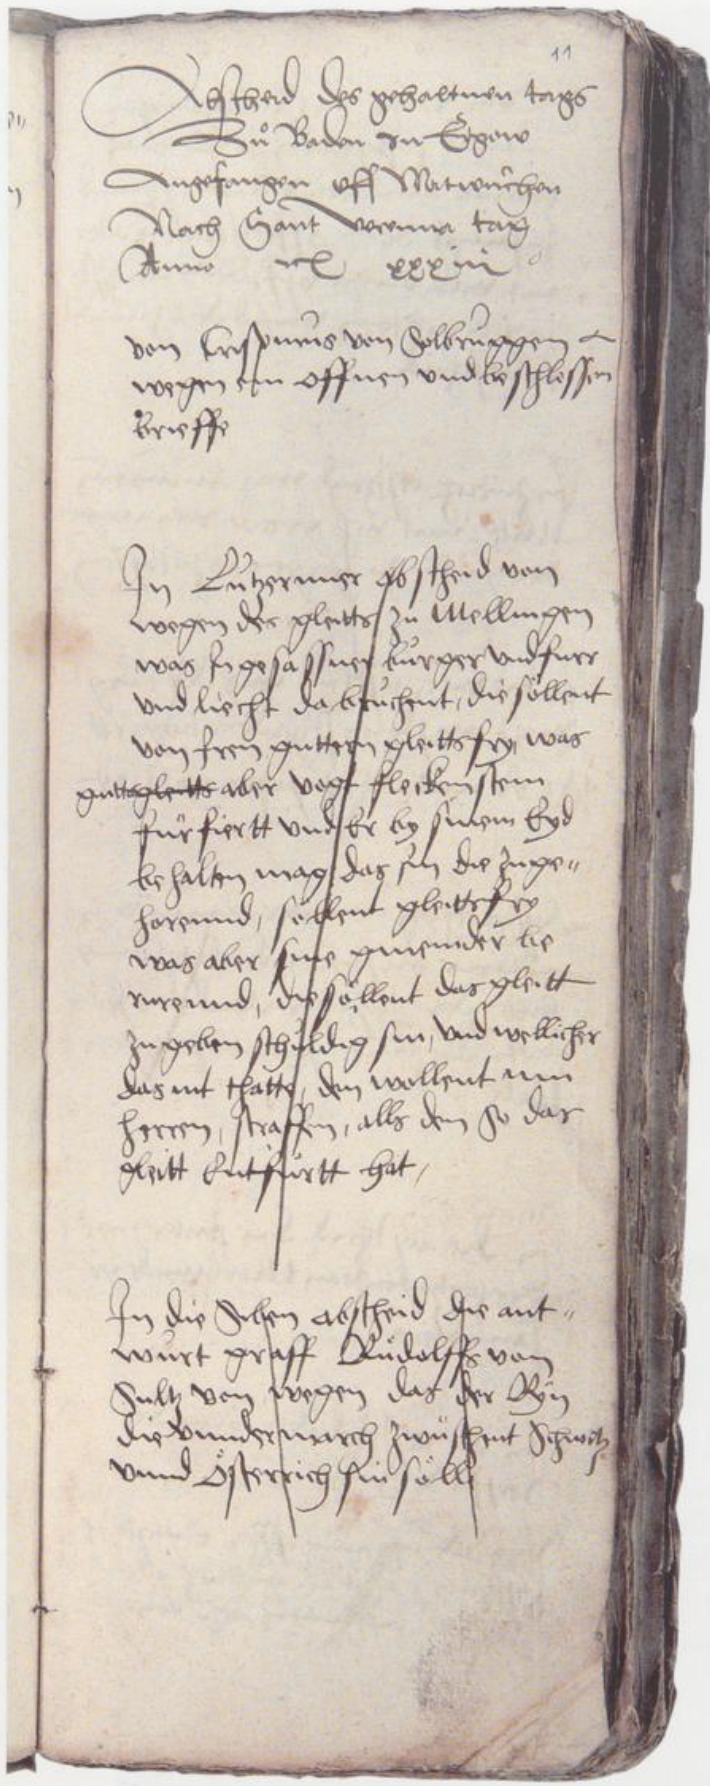 11
Abscheid des gehaltnen tags
Zů Baden im Ergow
Angefangen uff Mitwuchen
Nach Sant verena tag
Anno xxxiii
von Crispinus von Solbruggen
wegen ein offnen und beschlossen
brieffe
In Lutzernner abscheid von
wegen des gleitts zu Mellingen
was Ingesässner burger und furr
und liecht da bruchent, die söllent
von Iren guttern gleittsfry, was
guttz gleitts aber vogt fleckenstein
für fiertt und Er by sinem Eyd
behalten mag das Im die zuge"
horennd, sollent gleittsfry
was aber sine gmeinder be
rurennd, die söllent das gleitt
zu geben schuldig sin, und wellicher
das nit thätte, den wollent min
herren, straffen, alls den so das
gleitt Entfürtt hat,
In die Siben abscheid die ant"
wurt graff Růdolffs von
Sultz von wegen das der Ryn
die undermarch zwüschent Schwitz
unnd Österrich sin sölle